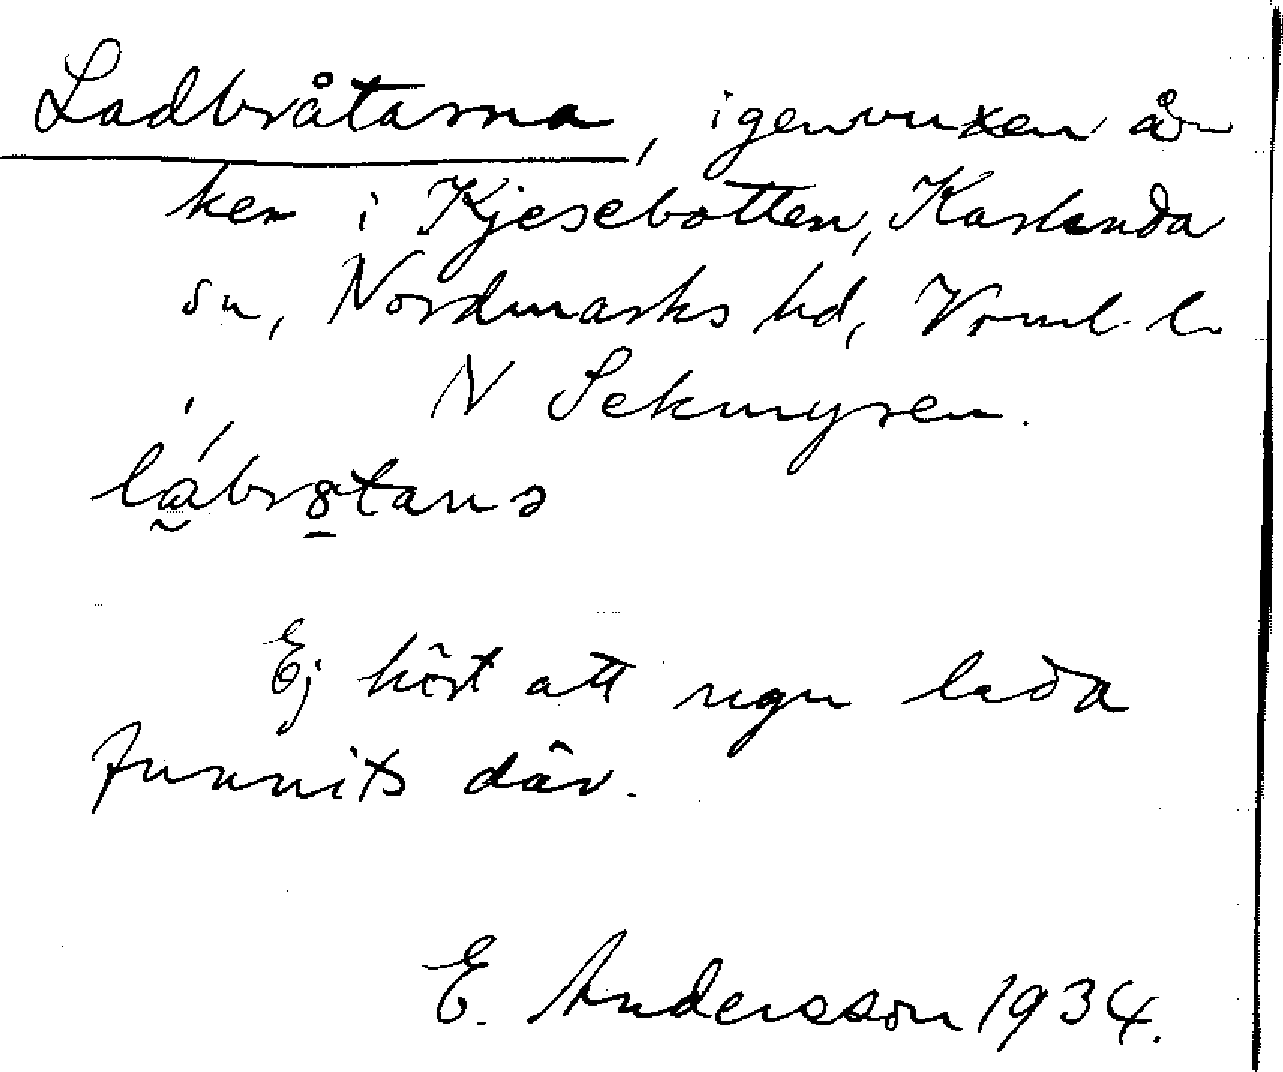 Ladbråtarna, igenvuxen åk
ker i Kjesebotten, Karlanda
sn, Nordmarks hd, Vrml. l.
N Sekmyren.
Ej hört att ngn lada
funnits där.
E. Andersson 1934.